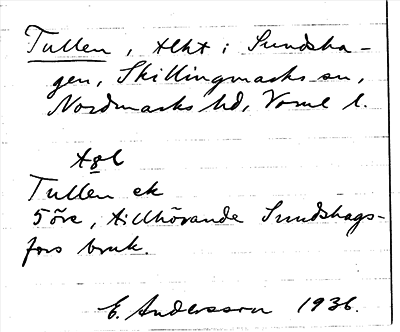 Tullen, tlht i Sundsha-
gen, Skillingmarks sn,
Nordmarks hd, Vrml l.
Agl
Tullen ek
5 öre, tillhörande Sundshags-
fors bruk.
E. Andersson 1936.